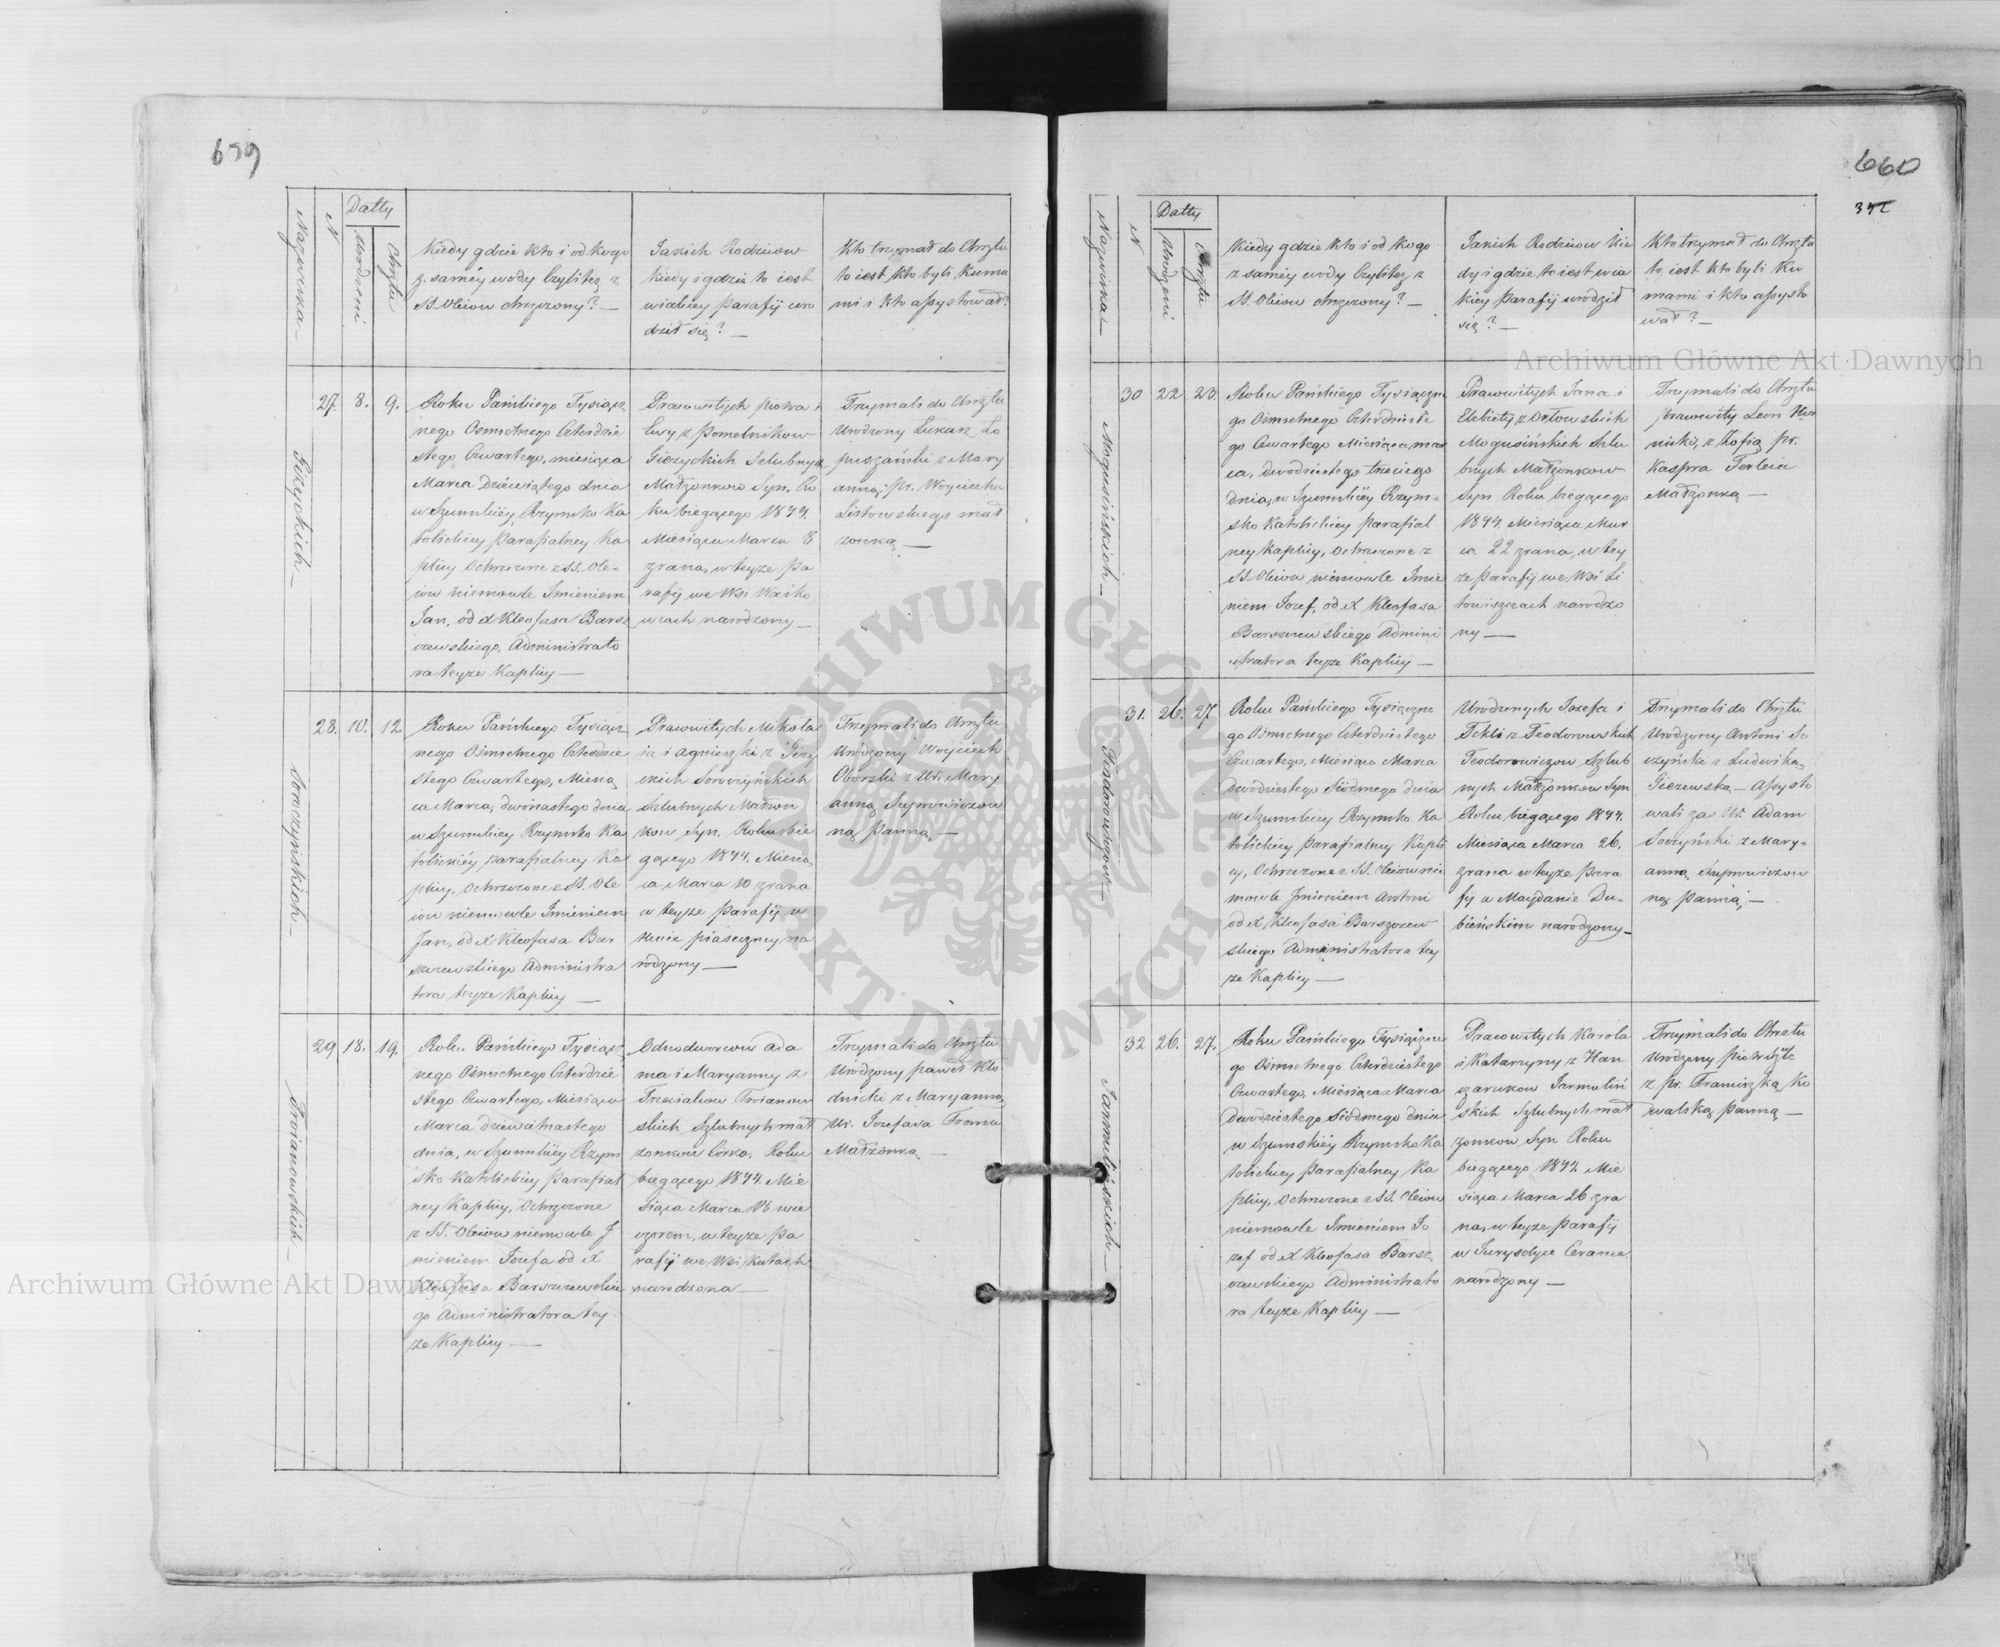 659
Nazwiska
N
Datty
Urodzeni
Chrztu
Kiedy gdzie kto i od kogo
z samey wody czyli też z
SS. Oleiow chrzczony? —
Jakich Rodzicow
kiedy i gdzie to iest
w iakiey Parafij uro
dził się? —
Kto trzymał do Chrztu
to iest kto byli Kuma
mi i kto assystował?
Giżyckich —
27.
8.
9.
Roku Pańskiego Tysiącz
nego Osmsetnego Czterdzie
stego Czwartego, miesiąca
Marca Dziewiątego dnia
w Szumskiey Rzymsko Ka
tolickiey Parafialney Ka
plicy Ochrzczone z SS. Ole-
iow niemowle Imieniem
Jan, od X Kleofasa Bars
czewskiego, Administrato
ra teyże Kaplicy —
Pracowitych Piotra i
Ewy z Pometnikow
Giżyckich Szlubnych
Małżonkow Syn. Ro
ku biegącego 1844.
Miesiąca Marca 8
zrana, w teyże Pa
rafij we Wsi Waśko
wcach narodzony —
Trzymali do Chrztu
Urodzony Łukasz Ło
puszański z Mary
anną Pr. Woyciecha
Listowskiego mał
żonką —
Sowczynskich —
28.
10.
12
Roku Pańskiego Tysiącz
nego Osmsetnego Czterdzie
stego Czwartego, Miesią
ca Marca, dwonastego dnia
w Szumskiey Rzymsko Ka
tolickiey, parafialney Ka
plicy, Ochrzczone z SS. Ole
iow niemowle Imieniem
Jan, od X Kleofasa Bar
szczewskiego Administra
tora teyże Kaplicy —
Pracowitych Mikoła
ia i Agnieszki z Giży
ckich Sowczyńskich
Szlubnych Małżon
kow Syn. Roku bie
gącego 1844. Miesią
ca Marca 10 zrana
w teyże Parafij w
Hucie piaseczney na
rodzony —
Trzymali do Chrztu
Urodzony Woyciech
Oborski z Ur. Mary
anną Suprowiczow
ną Panną —
Troianowskich —
29
18.
19.
Roku Pańskiego Tysiącz
nego Osmsetnego Czterdzie
stego Czwartego, Miesiąca
Marca dziewiętnastego
dnia, w Szumskiey Rzym
sko Katolickiey Parafial
ney Kaplicy, Ochrzczone
z SS. Oleiow niemowle J
mieniem Jozefa od X
Kleofasa Barszczewskie
go Administratora tey
że Kaplicy —
Odnodworcow Ada
ma i Maryanny z
Troianow
skich Szlubnych mał
żonkow Córka, Roku
biegącego 1844. Mie
siąca Marca 18 wie
czorem, w teyże Pa
rafij we Wsi Kutach
narodzona —
Trzymali do Chrztu
Urodzony Paweł Kło
dnicki z Maryanną
Ur. Jozefata
Małżonką —
660
Nazwiska —
N
Datty
Urodzeni
Chrztu
Kiedy gdzie kto i od kogo
z samey wody czyli też z
SS. Oleiow chrzczony? —
Jakich Rodzicow kie
dy i gdzie to iest w ia
kiey Parafij urodził
się? —
Kto trzymał do Chrztu
to iest kto byli Ku
mami i kto assysto
wał? —
Mogusińskich —
30
22
23.
Roku Pańskiego Tysiączne
go Osmsetnego Czterdzieste
go Czwartego Miesiąca mar
ca, dwodziestego trzeciego
dnia, w Szumskiey Rzym-
sko Katolickiey parafial
ney Kaplicy, Ochrzczone z
SS. Oleiow niemowle Imie
niem Jozef, od X Kleofasa
Barszczewskiego Admini
stratora teyże Kaplicy —
Pracowitych Jana i
Elżbiety z Orłowskich
Mogusińskich Szlu
bnych Małżonkow
Syn Roku biegącego
1844. Miesiąca Mar
ca 22 zrana, w tey
że Parafij we Wsi Li
towiszczach narodzo
ny —
Trzymali do Chrztu
Pracowity Leon
z Zofią Pr.
Kaspra
Małżonką —
Teodorowiczow —
31.
26.
27
Roku Pańskiego Tysiączne
go Osmsetnego Czterdziestego
Czwartego, Miesiąca Marca
Dwodziestego Siódmego dnia
w Szumskiey Rzymsko Ka
tolickiey parafialney Kapli
cy, Ochrzczone z SS. Oleiow nie
mowle Imieniem Antoni
od X Kleofasa Barszczew
skiego Administratora tey
że Kaplicy —
Urodzonych Jozefa i
Tekli z Teodorowskich
Teodorowiczow Szlub
nych Małżonkow Syn
Roku biegącego 1844.
Miesiąca Marca 26.
zrana w teyże Para
fij w Maydanie Du-
bieńskim narodzony —
Trzymali do Chrztu
Urodzony Antoni So
czyński z Ludwiką
Giżewską — Assysto
wali zaś Ur. Adam
Soczyński z Mary-
anną Suprowiczow
ną Panną —
Jarmulińskich —
32
26.
27.
Roku Pańskiego Tysiączne
go Osmsetnego Czterdziestego
Czwartego, Miesiąca Marca
Dwodziestego Siódmego dnia
w Szumskiey Rzymsko Ka
tolickiey Parafialney Ka
plicy, Ochrzczone z SS. Oleiow
niemowle Imieniem Jo
zef od X Kleofasa Barsz
czewskiego Administrato
ra teyże Kaplicy —
Pracowitych Karola
i Katarzyny z Han
czarukow Jarmuliń
skich Szlubnych mał
żonkow Syn Roku
biegącego 1844 Mie
siąca Marca 26 zra
na, w teyże Parafij
w Jurysdyce Ceranie
narodzony —
Trzymali do Chrztu
Urodzony Piotr
z Pr. Franciszką Ko
walską Panną —
Archiwum Główne Akt Dawnych
Archiwum Główne Akt Dawnych
ARCHIWUM GŁÓWNE AKT DAWNYCH